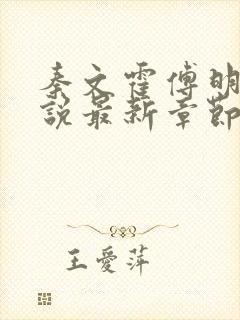 秦文霍傅明
說最新章節
王愛萍